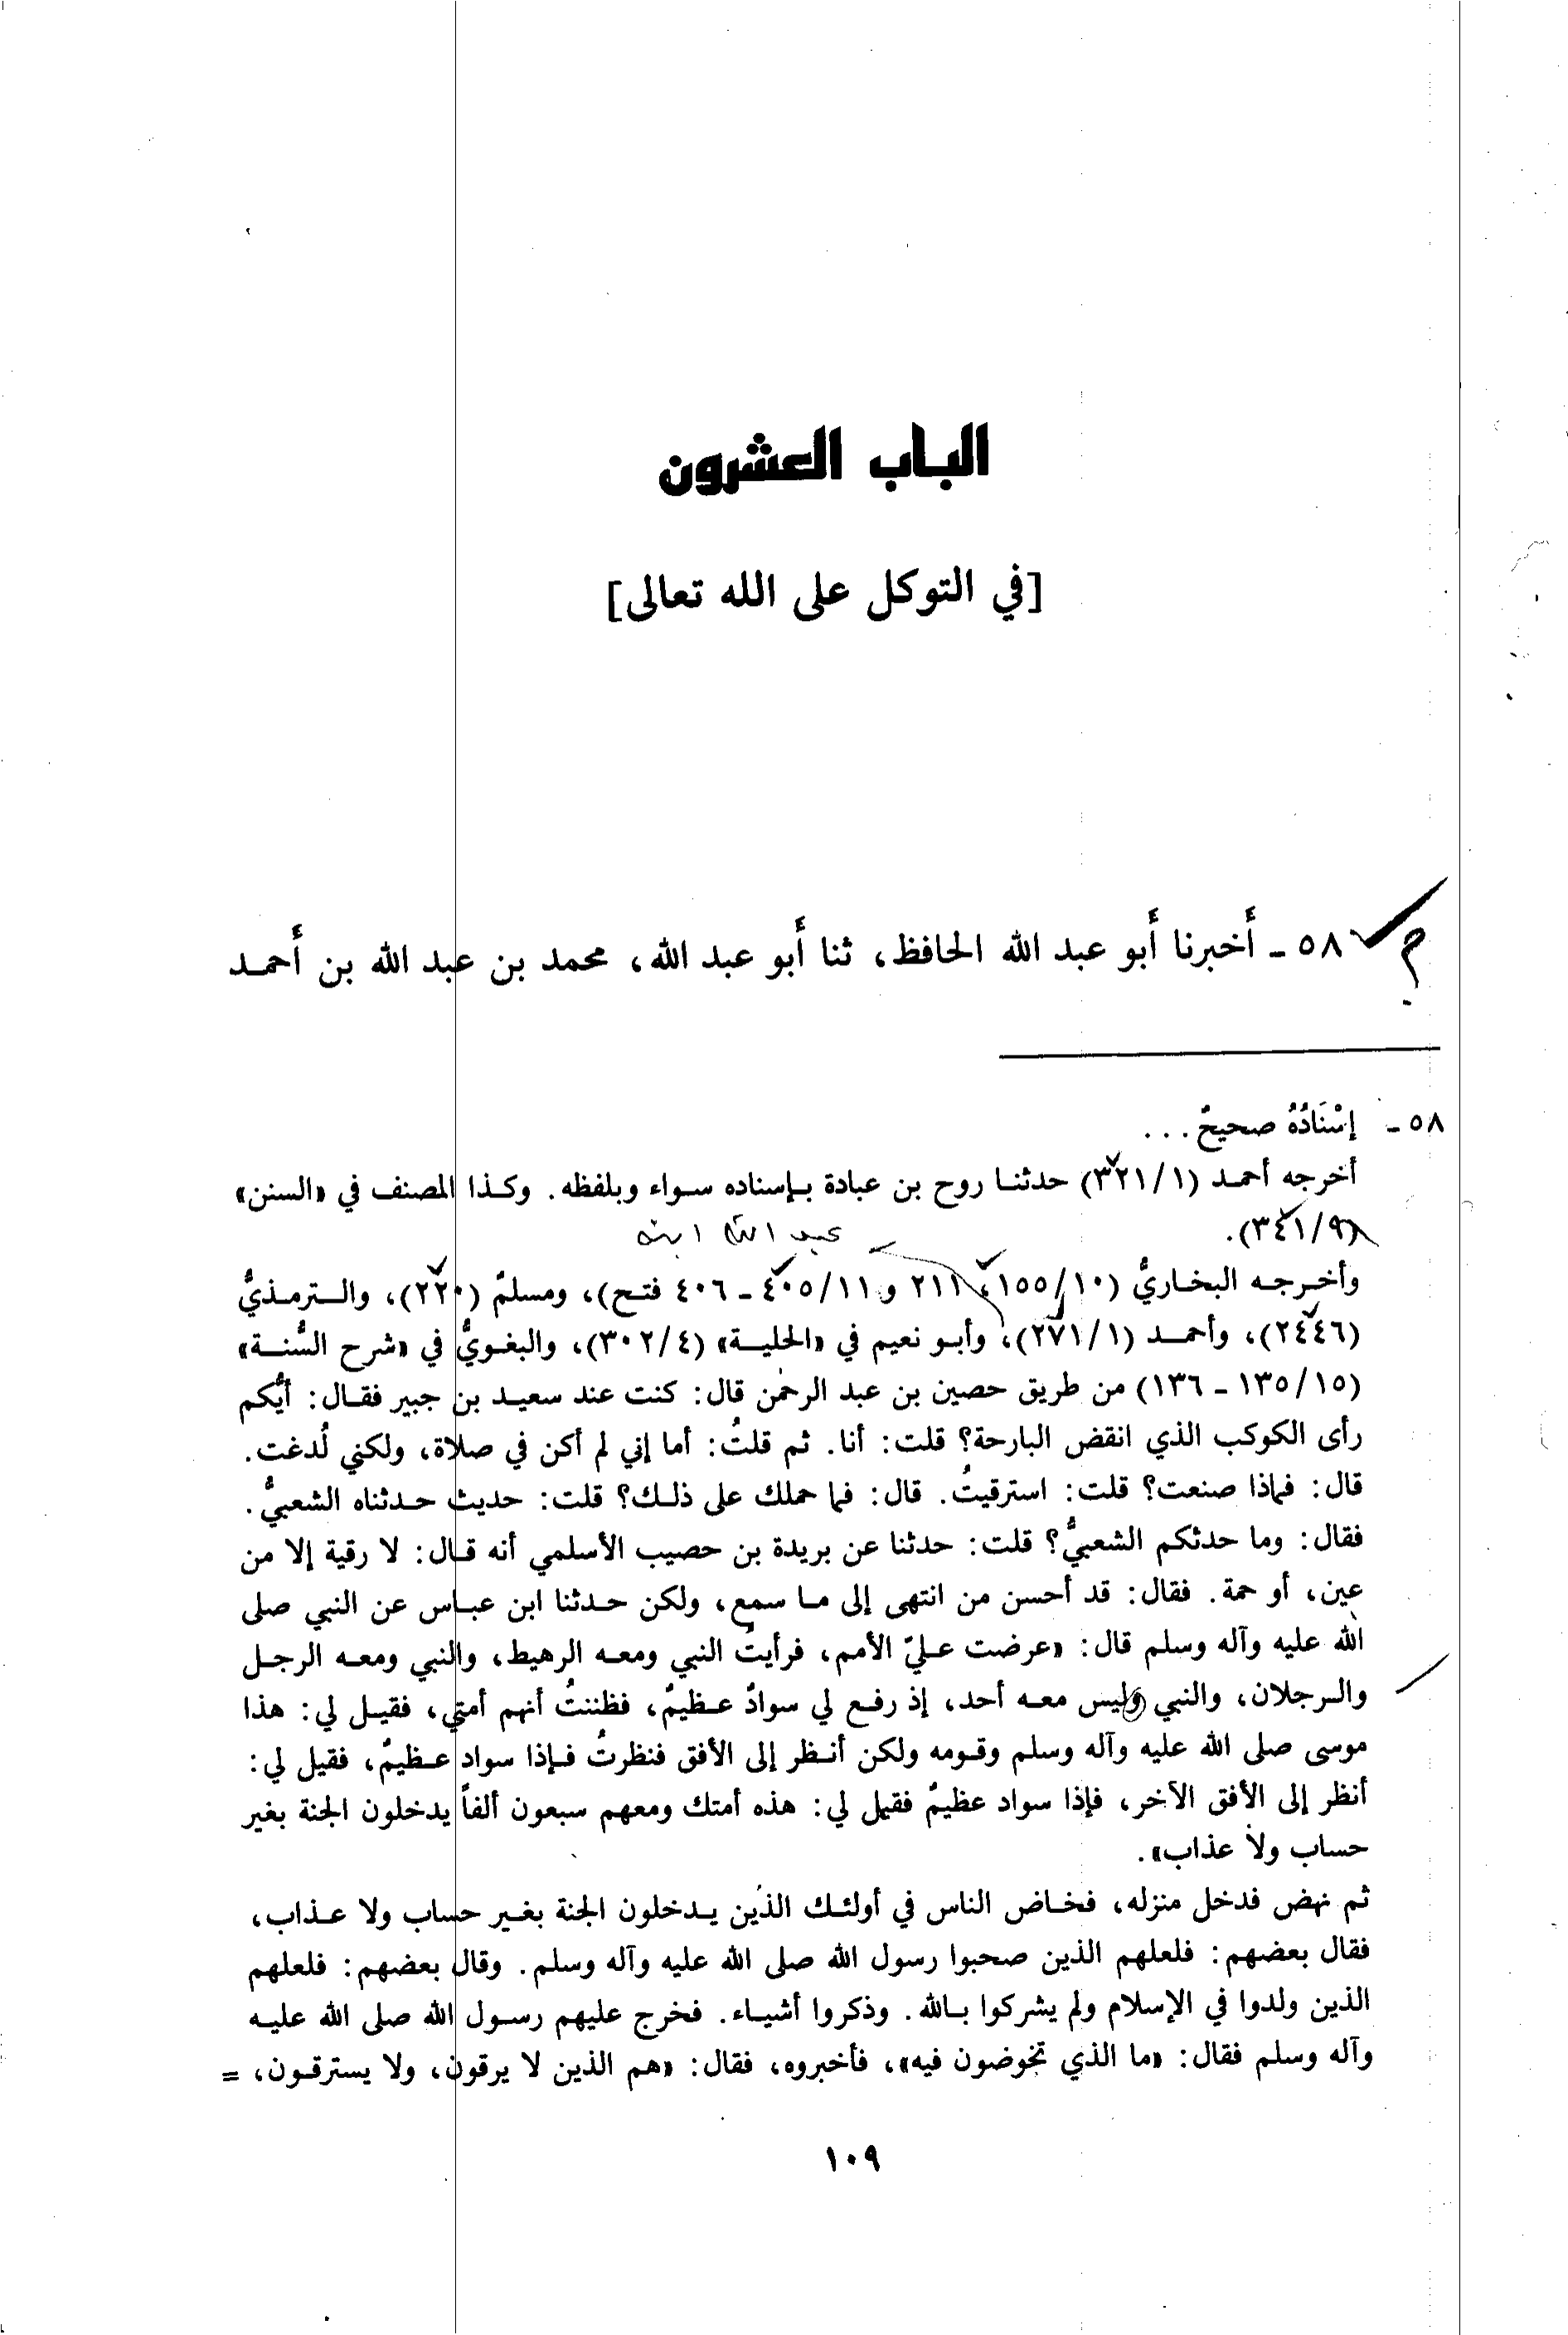 الباب العشرون
[في التوكل على الله تعالى]
٥٨ - أَخبرنا أَبو عبد الله الحافظ، ثنا أَبو عبد الله، محمد بن عبد الله بن أَحمد
٥٨ - إسْنَادُهُ صحيحٌ...
أخرجه أحمد (٣٢١/١) حدثنا روح بن عبادة بإسناده سواء وبلفظه. وكذا المصنف في «السنن»
(٣٤١/٩).
عبد الله ابنه
وأخرجه البخاريُّ (١٥٥/١٠، ٢١١ و ٤٠٥/١١ - ٤٠٦ فتح)، ومسلمٌ (٢٢٠)، والترمذيُّ
(٢٤٤٦)، وأحمد (٢٧١/١)، وأبو نعيم في «الحلية» (٣٠٢/٤)، والبغويُّ في «شرح السُّنة»
(١٣٥/١٥ - ١٣٦) من طريق حصين بن عبد الرحمٰن قال: كنت عند سعيد بن جبير فقال: أيُّكم
رأى الكوكب الذي انقض البارحة؟ قلت: أنا. ثم قلتُ: أما إني لم أكن في صلاة، ولكني لُدغت.
قال: فماذا صنعت؟ قلت: استرقيتُ. قال: فما حملك على ذلك؟ قلت: حديث حدثناه الشعبيُّ.
فقال: وما حدثكم الشعبيُّ؟ قلت: حدثنا عن بريدة بن حصيب الأسلمي أنه قال: لا رقية إلا من
عين، أو حمة. فقال: قد أحسن من انتهى إلى ما سمع، ولكن حدثنا ابن عباس عن النبي صلى
الله عليه وآله وسلم قال: «عرضت عليّ الأمم، فرأيتُ النبي ومعه الرهيط، والنبي ومعه الرجل
والرجلان، والنبي وليس معه أحد، إذ رفع لي سوادٌ عظيمٌ، فظننتُ أنهم أمتي، فقيل لي: هذا
موسى صلى الله عليه وآله وسلم وقومه ولكن أنظر إلى الأفق فنظرتُ فإذا سواد عظيمٌ، فقيل لي:
أنظر إلى الأفق الآخر، فإذا سواد عظيمٌ فقيل لي: هذه أمتك ومعهم سبعون ألفاً يدخلون الجنة بغير
حساب ولا عذاب».
ثم نهض فدخل منزله، فخاض الناس في أولئك الذين يدخلون الجنة بغير حساب ولا عذاب،
فقال بعضهم: فلعلهم الذين صحبوا رسول الله صلى الله عليه وآله وسلم. وقال بعضهم: فلعلهم
الذين ولدوا في الإسلام ولم يشركوا بالله. وذكروا أشياء. فخرج عليهم رسول الله صلى الله عليه
وآله وسلم فقال: «ما الذي تخوضون فيه»، فأخبروه، فقال: «هم الذين لا يرقون، ولا يسترقون، =
١٠٩